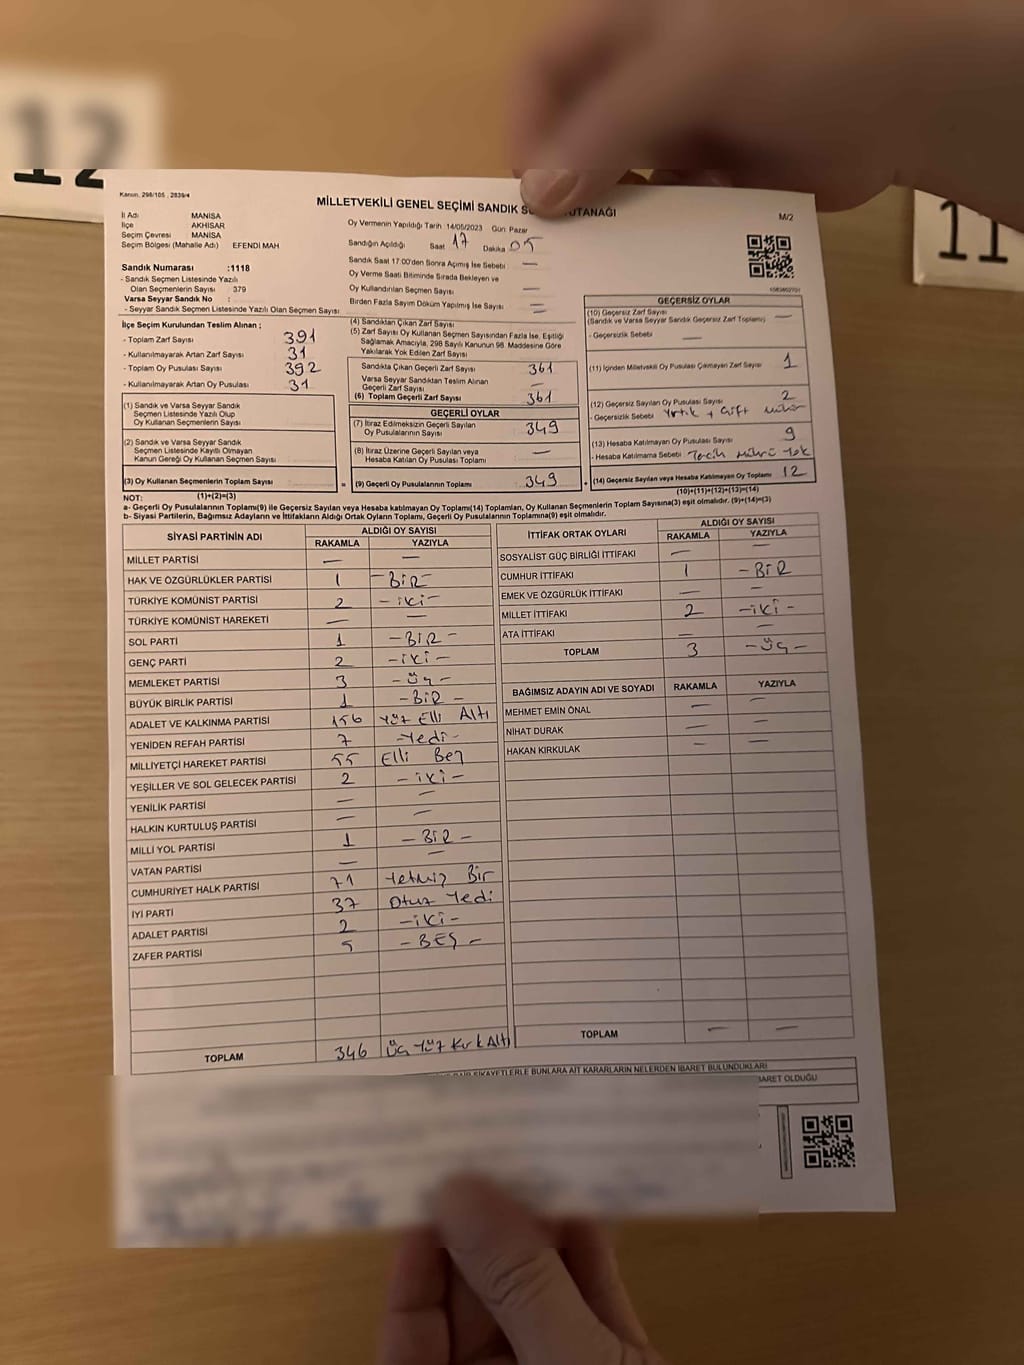 12
11
Kanun. 298/105 , 2839/4
MİLLETVEKİLİ GENEL SEÇİMİ SANDIK S UTANAĞI
M/2
İl Adı MANİSA
İlçe AKHİSAR
Seçim Çevresi MANİSA
Seçim Bölgesi (Mahalle Adı) EFENDİ MAH
Sandık Numarası :1118
- Sandık Seçmen Listesinde Yazılı
Olan Seçmenlerin Sayısı : 379
Varsa Seyyar Sandık No :
- Seyyar Sandık Seçmen Listesinde Yazılı Olan Seçmen Sayısı :
Oy Vermenin Yapıldığı Tarih :14/05/2023 Gün: Pazar
Sandığın Açıldığı Saat 17 Dakika 05
Sandık Saat 17.00'den Sonra Açımış İse Sebebi : —
Oy Verme Saati Bitiminde Sırada Bekleyen ve
Oy Kullandırılan Seçmen Sayısı : —
Birden Fazla Sayım Döküm Yapılmış İse Sayısı : —
İlçe Seçim Kurulundan Teslim Alınan :
- Toplam Zarf Sayısı : 391
- Kullanılmayarak Artan Zarf Sayısı : 31
- Toplam Oy Pusulası Sayısı : 392
- Kullanılmayarak Artan Oy Pusulası : 31
(1) Sandık ve Varsa Seyyar Sandık
Seçmen Listesinde Yazılı Olup
Oy Kullanan Seçmenlerin Sayısı :
(2) Sandık ve Varsa Seyyar Sandık
Seçmen Listesinde Kayıtlı Olmayan
Kanun Gereği Oy Kullanan Seçmen Sayısı :
(3) Oy Kullanan Seçmenlerin Toplam Sayısı :
(4) Sandıktan Çıkan Zarf Sayısı :
(5) Zarf Sayısı Oy Kullanan Seçmen Sayısından Fazla İse, Eşitliği
Sağlamak Amacıyla, 298 Sayılı Kanunun 98. Maddesine Göre
Yakılarak Yok Edilen Zarf Sayısı :
Sandıkta Çıkan Geçerli Zarf Sayısı : 361
Varsa Seyyar Sandıktan Teslim Alınan
Geçerli Zarf Sayısı : —
(6) Toplam Geçerli Zarf Sayısı : 361
GEÇERLİ OYLAR
(7) İtiraz Edilmeksizin Geçerli Sayılan
Oy Pusulalarının Sayısı : 349
(8) İtiraz Üzerine Geçerli Sayılan veya
Hesaba Katılan Oy Pusulası Toplamı : —
= (9) Geçerli Oy Pusulalarının Toplamı : 349
GEÇERSİZ OYLAR
(10) Geçersiz Zarf Sayısı
(Sandık ve Varsa Seyyar Sandık Geçersiz Zarf Toplamı) : —
- Geçersizlik Sebebi : —
(11) İçinden Milletvekili Oy Pusulası Çıkmayan Zarf Sayısı : 1
(12) Geçersiz Sayılan Oy Pusulası Sayısı : 2
- Geçersizlik Sebebi : Yırtık + Çift Mühür
(13) Hesaba Katılmayan Oy Pusulası Sayısı : 9
- Hesaba Katılmama Sebebi : Tercih Mührü Yok
+ (14) Geçersiz Sayılan veya Hesaba Katılmayan Oy Toplamı : 12
NOT: (1)+(2)=(3) (10)+(11)+(12)+(13)=(14)
a- Geçerli Oy Pusulalarının Toplamı(9) ile Geçersiz Sayılan veya Hesaba katılmayan Oy Toplamı(14) Toplamları, Oy Kullanan Seçmenlerin Toplam Sayısına(3) eşit olmalıdır. (9)+(14)=(3)
b- Siyasi Partilerin, Bağımsız Adayların ve İttifakların Aldığı Ortak Oyların Toplamı, Geçerli Oy Pusulalarının Toplamına(9) eşit olmalıdır.
SİYASİ PARTİNİN ADI ALDIĞI OY SAYISI
RAKAMLA YAZIYLA
MİLLET PARTİSİ — —
HAK VE ÖZGÜRLÜKLER PARTİSİ 1 -BİR-
TÜRKİYE KOMÜNİST PARTİSİ 2 -iki-
TÜRKİYE KOMÜNİST HAREKETİ — —
SOL PARTİ 1 -BİR-
GENÇ PARTİ 2 -iki-
MEMLEKET PARTİSİ 3 -üç-
BÜYÜK BİRLİK PARTİSİ 1 -BİR-
ADALET VE KALKINMA PARTİSİ 156 Yüz Elli Altı
YENİDEN REFAH PARTİSİ 7 -Yedi-
MİLLİYETÇİ HAREKET PARTİSİ 55 Elli Beş
YEŞİLLER VE SOL GELECEK PARTİSİ 2 -iki-
YENİLİK PARTİSİ — —
HALKIN KURTULUŞ PARTİSİ — —
MİLLİ YOL PARTİSİ 1 -BİR-
VATAN PARTİSİ — —
CUMHURİYET HALK PARTİSİ 71 Yetmiş Bir
İYİ PARTİ 37 Otuz Yedi
ADALET PARTİSİ 2 -iki-
ZAFER PARTİSİ 5 -BEŞ-
TOPLAM 346 Üç Yüz Kırk Altı
İTTİFAK ORTAK OYLARI ALDIĞI OY SAYISI
RAKAMLA YAZIYLA
SOSYALİST GÜÇ BİRLİĞİ İTTİFAKI — —
CUMHUR İTTİFAKI 1 -BİR-
EMEK VE ÖZGÜRLÜK İTTİFAKI — —
MİLLET İTTİFAKI 2 -iki-
ATA İTTİFAKI — —
TOPLAM 3 -Üç-
BAĞIMSIZ ADAYIN ADI VE SOYADI RAKAMLA YAZIYLA
MEHMET EMİN ÖNAL — —
NİHAT DURAK — —
HAKAN KIRKULAK — —
TOPLAM — —
ŞİKAYETLERLE BUNLARA AİT KARARLARIN NELERDEN İBARET BULUNDUKLARI
BARET OLDUĞU